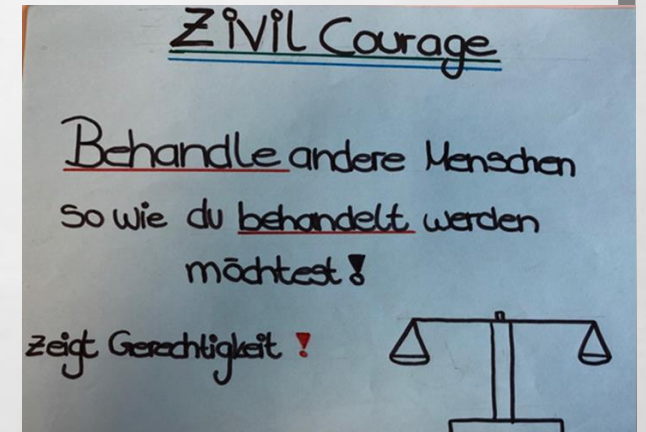 Zivil Courage
Behandle andere Menschen
so wie du behandelt werden
möchtest!
zeigt Gerechtigkeit!